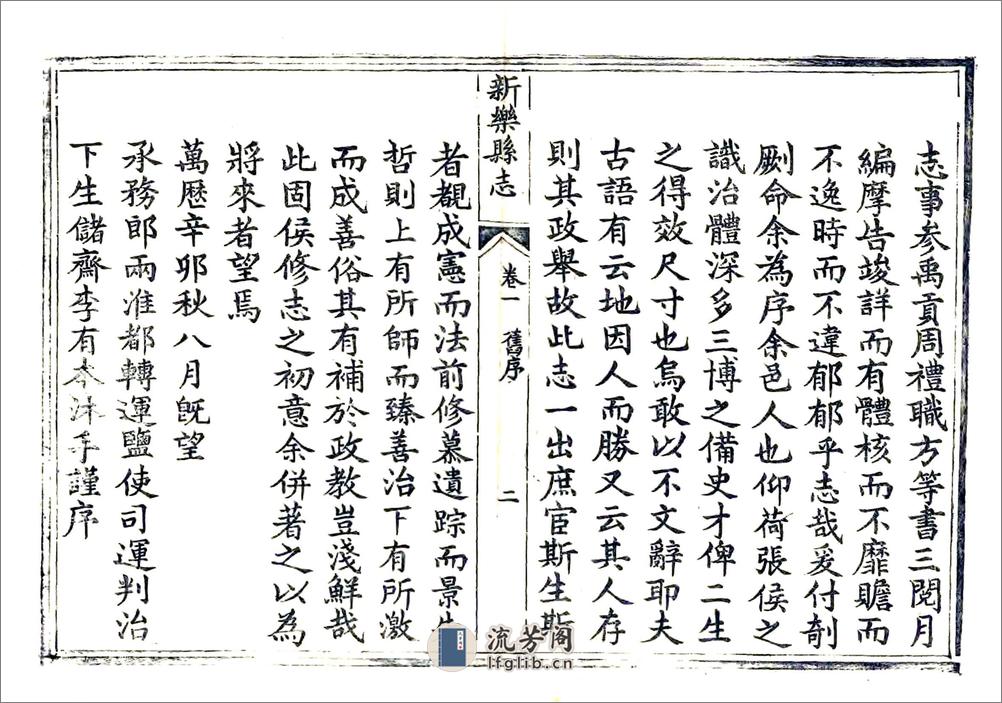 志事参禹貢周禮職方等書三閱月
編摩告竣詳而有體核而不靡贍而
不逸時而不違郁郁乎志哉爰付剞
劂命余為序余邑人也仰荷張侯之
識治體深多三博之備史才俾二生
之得效尺寸也烏敢以不文辭耶夫
古語有云地因人而勝又云其人存
則其政舉故此志一出庶宦斯生斯
新樂縣志
卷一
舊序
二
者覩成憲而法前修慕遺踪而景先
哲則上有所師而臻善治下有所激
而成善俗其有補於政教豈淺鮮哉
此固侯修志之初意余併著之以為
將來者望焉
萬歷辛卯秋八月既望
承務郎兩淮都轉運鹽使司運判治
下生儲齋李有本沐手謹序
流芳阁
lfglib.cn